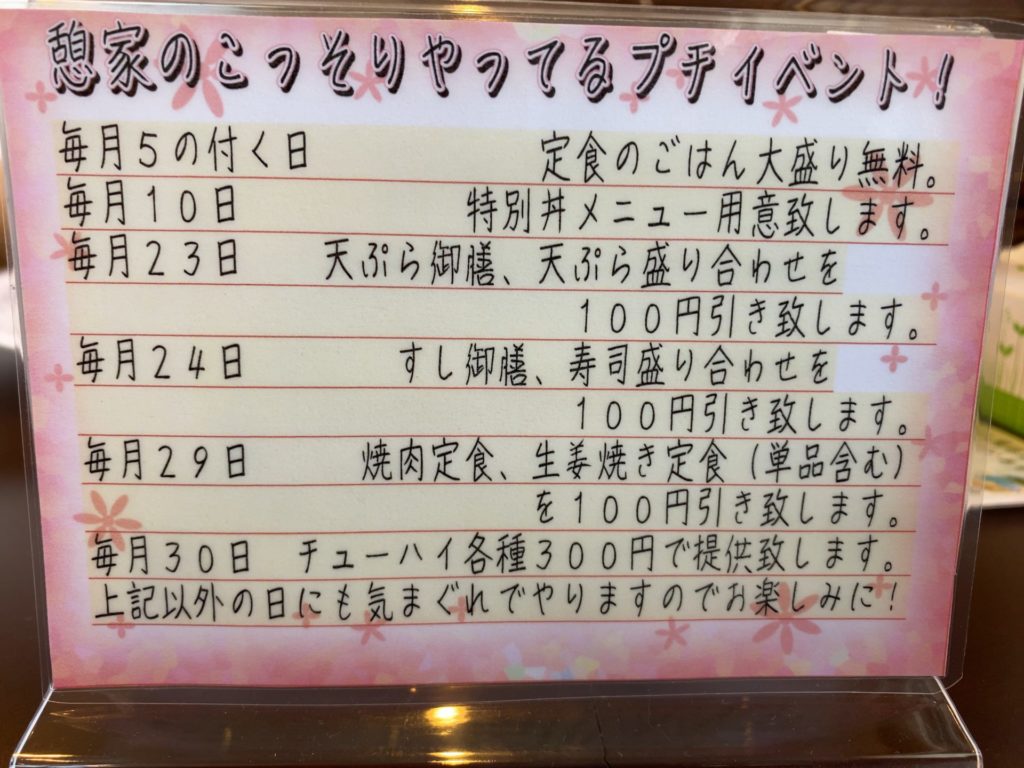 憩家のこっそりやってるプチイベント！
毎月５の付く日　定食のごはん大盛り無料。
毎月１０日　特別丼メニュー用意致します。
毎月２３日　天ぷら御膳、天ぷら盛り合わせを
１００円引き致します。
毎月２４日　すし御膳、寿司盛り合わせを
１００円引き致します。
毎月２９日　焼肉定食、生姜焼き定食（単品含む）
を１００円引き致します。
毎月３０日　チューハイ各種３００円で提供致します。
上記以外の日にも気まぐれでやりますのでお楽しみに！